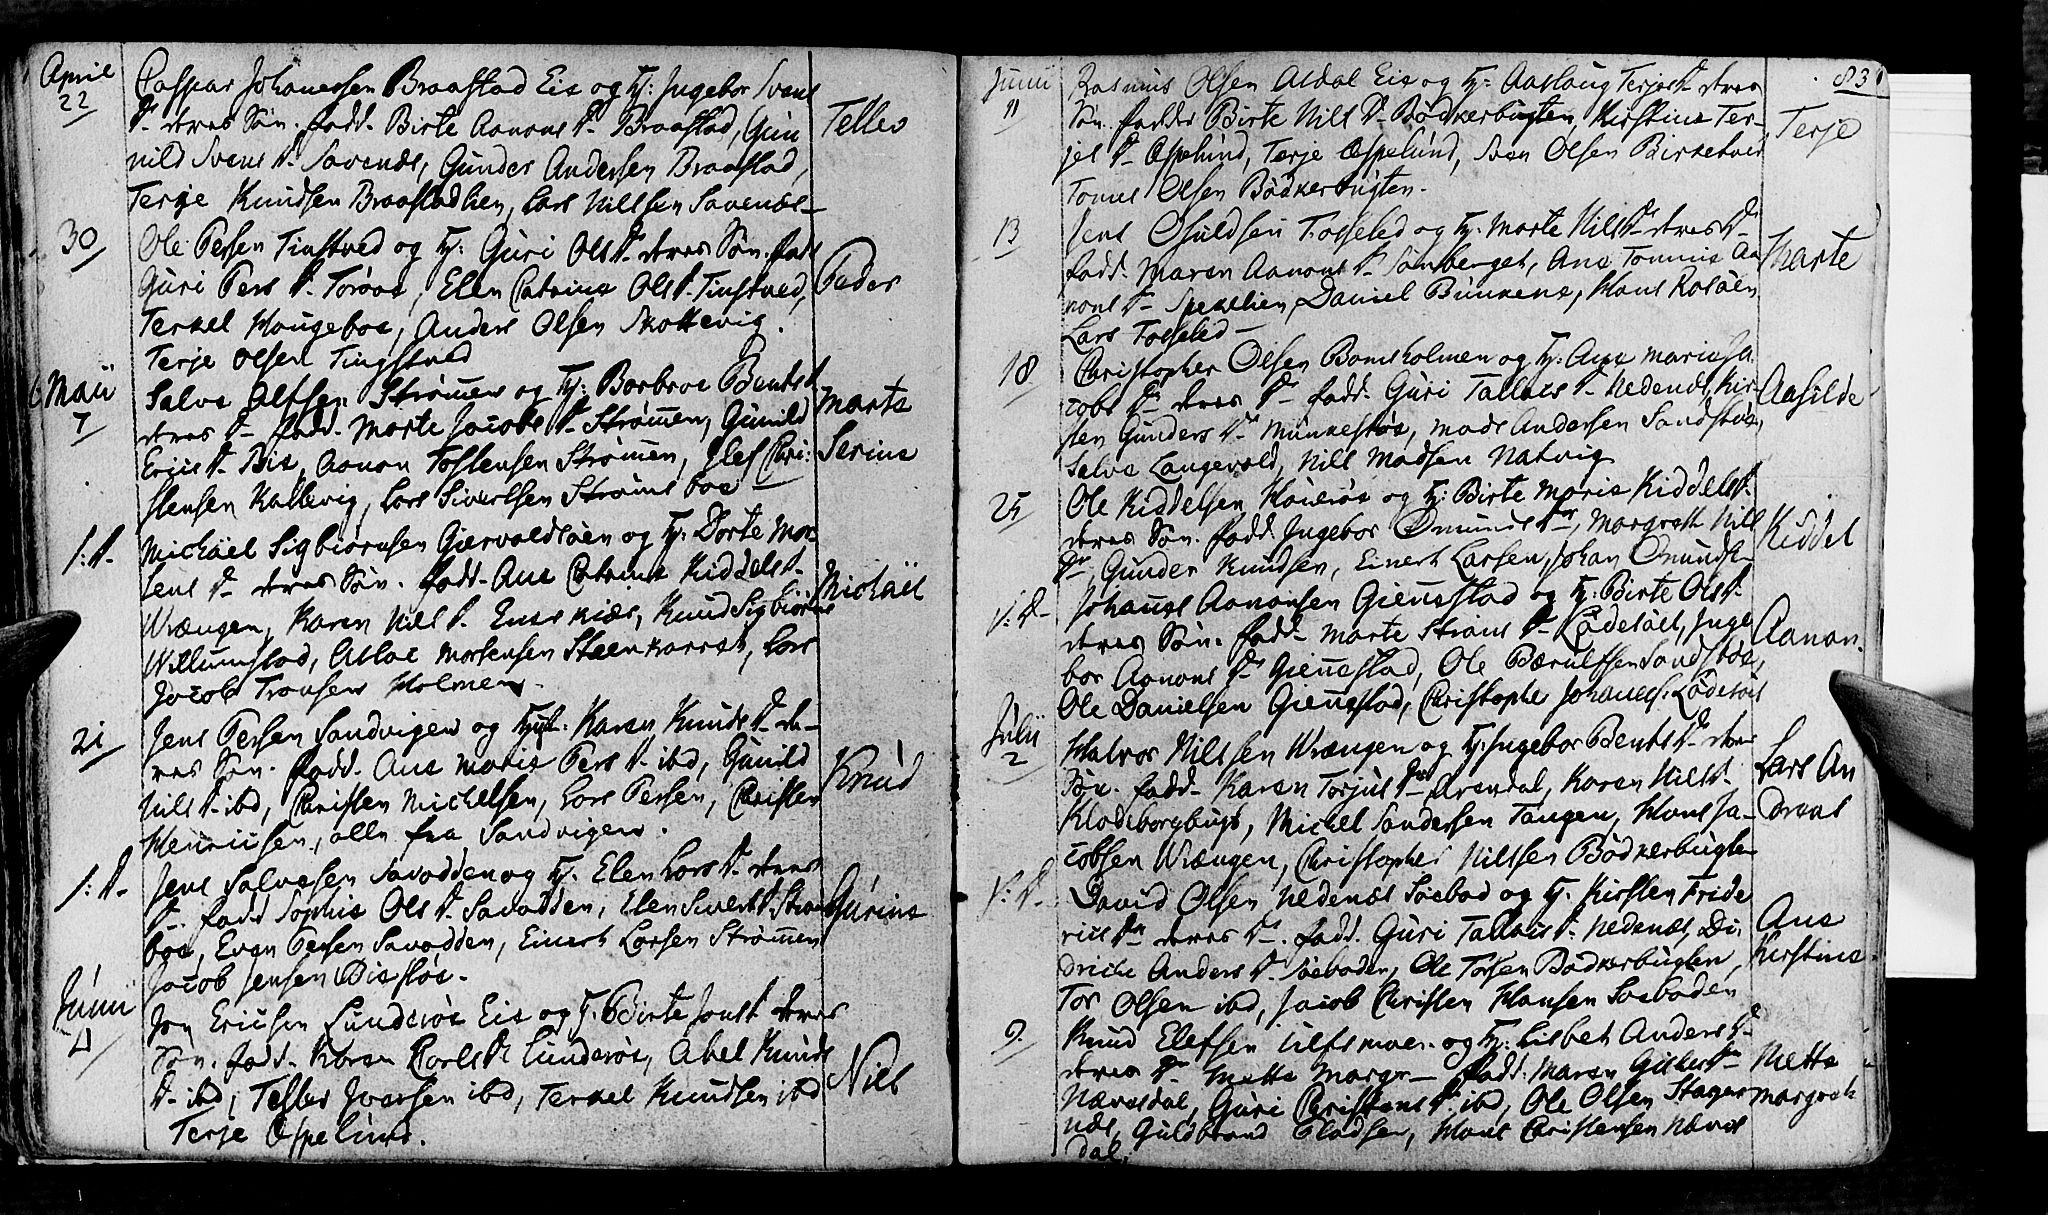 April
22
Caspar Johanessen Braastad Eie og H: Ingebor Svens
D. deres Søn. fadd. Birte Aanons D. Braastad, Gun
Tellev
nild Svens D. Savenes, Gunder Andersen Braastad,
Terje Knudsen Braastadlien, Lars Nillsen Savenes
30
Ole Persen Tinstved og H: Guri Ols D. deres Søn. fadd
Guri Pers D. Torøe, Elen Catrine Ols D. Tinstved,
Peder
Terkel Haugeboe, Anders Olsen Skottevig.
Terje Olsen Tingstved
Maii
7
Salve Olfsen Strømen og H: Barbroe Bents D
deres D. fadd. Marte Jacobs D. Strømen, Gunild
Marte
Erics D. Bie, Aanon Tostensen Strømen, Elef Chri:
Serine
stensen Kallevig, Lars Sivertsen Strømsboe
1: D.
Michäel Sigbiørnsen Giervaldsøen og H: Dorte Mor
tens D. deres Søn. fadd. Ane Catrine Kiddels D.
Michäel
Wrængen, Karen Nills D. Enerkiær, Knud Sigbiørns
Willumstad, Asloe Mortensen Steenkarret, Lars
Jacob Transen Holmen.
21
Jens Persen Sandvigen og H: Karen Knuds D. de-
res Søn. fadd. Ane Marie Pers D. ibd, Gunild
Knud
Nils D. ibd, Christen Michelsen, Lars Persen, Christen
Henricsen, alle fra Sandvigen.
1: D.
Jens Salvesen Savodden og H. Elen Lars D. deres
D. fadd Sophie Ols D. Savodden, Elen Sivert D Strøms
Gurine
boe, Even Persen Savodden, Einert Larsen Strømen
Jacob Jensen Biestøe.
Junii
4
Jon Ericsen Lunderøe Eie og H. Birte Jons D deres
Søn. fadd. Karen Carls Dr Lunderøe, Abel Knuds
Niels
D. ibd, Tellev Iversen ibd, Terkel Knudsen ibd
Terje Espelund.
83
Junii
11
Rasmus Olsen Asdal Eie og H: Aaslaug Terjes D. deres
Søn. fadder Birte Nills D. Bødkerbugten, Kirstine Ter-
Terje
jes D. Espelund, Terje Espelund, Sven Olsen Birketveit
Tomes Olsen Bødkerbugten.
13
Jens Osuldsen Tosseled og H: Marte Nils Dr deres D.
fadd. Maren Aanons D. Sønberget, Ane Tomine Aa
Marte
nons D. Speklien, Daniel Bunkene, Hans Kasøen
Lars Tosseled
18
Christopher Olsen Bomsholmen og H: Ane Marie Ja
cobs Dr deres D. fadd. Guri Tallacs D. Nedenes, Kir-
Aasilde
sten Gunders Dr Munkestøe, Mads Andersen Sandstøen,
Salve Langevold, Nills Madsen Natvig
25
Ole Kiddelsen Høierøe og H: Birte Marie Kiddels D.
deres Søn. fadd. Ingebor Omunds Dr, Margreth Nills
Kiddel
Dr, Gunder Knudsen, Einert Larsen, Johan Omunds-
1: D.
Johanes Aanonsen Gienestad og H: Birte Ols D.
deres Søn. fadd. Marte Strans D. Lødesøel, Inge
Aanon.
bor Aanons Dr Gienestad, Ole Bærulfsen Sandstøe,
Ole Danielsen Gienestad, Christophe Johanes: Lødesøel
Julii
2
Halvor Nillsen Wrængen og H: Ingebor Bents Dr deres
Søn. fadd. Karen Torjus Dr Arendal, Karen Nills D.
Lars An
Klodeborgbugt, Michel Sandersen Tangen, Hans Ja-
dreas
cobsen Wrængen, Christopher Nillsen Bødkerbugten
1: D.
David Olsen Nedenes Søebod og H. Kirsten Fride
rics Dr deres D. fadd. Guri Tallacs D. Nedenes, Di-
Ane
driche Anders D. Søeboden, Ole Torsen Bødkerbugten,
Kirstine
Tor Olsen ibd, Jacob Christen Hansen Søeboden
9.
Knud Elefsen Ulfsmoe. og H: Lisbet Anders D.
deres Dr Mette Margr. fadd. Maren Gitles Dr
Mette
Næresdal, Guri Christens D ibd, Ole Olsen Stager
Margreth
nes, Guldbrand Eladsen, Hans Christensen Næres
dal.